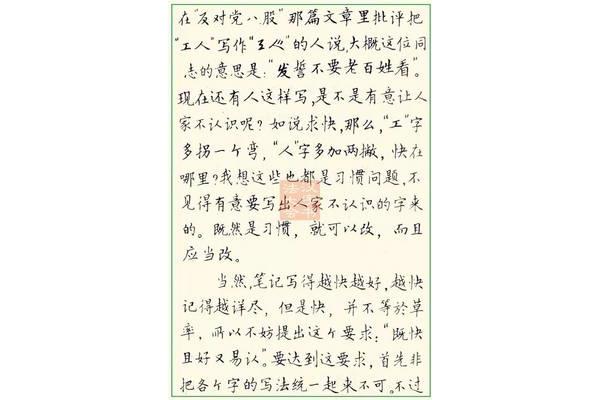 在"反对党八股"那篇文章里批评把
"工人"写作"𢀚𠆩"的人说,大概这位同
志的意思是:"发誓不要老百姓看"。
现在还有人这样写,是不是有意让人
家不认识呢?如说求快,那么,"工"字
多拐一个弯,"人"字多加两撇,快在
哪里?我想这些也都是习惯问题,不
见得有意要写出人家不认识的字来
的。既然是习惯,就可以改,而且
应当改。
当然,笔记写得越快越好,越快
记得越详尽,但是快,并不等於草
率,所以不妨提出这个要求:"既快
且好又易认"。要达到这要求,首先非
把各个字的写法统一起来不可。不过